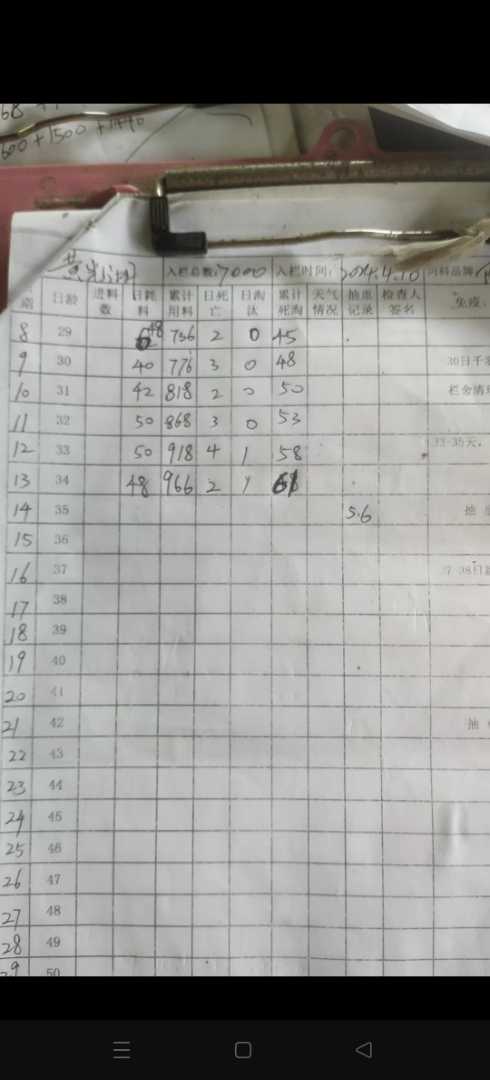 600+1500+1440
入栏总数:7000 入栏时间: 2024.4.10 饲料品牌
日龄 进料数 日耗料 累计用料 日死亡 日淘汰 累计死淘 天气情况 抽重记录 检查人签名 免疫:
8 29 48 736 2 0 45
9 30 40 776 3 0 48 30日千
10 31 42 818 2 0 50 栏舍清
11 32 50 868 3 0 53
12 33 50 918 4 1 58 33-35天,
13 34 48 966 2 1 61
14 35 5.6 抽
15 36
16 37 37-38日
17 38
18 39
19 40
20 41
21 42 抽
22 43
23 44
24 45
25 46
26 47
27 48
28 49
29 50